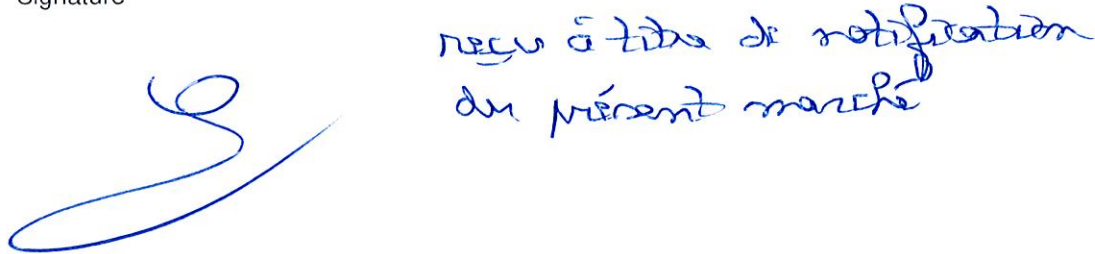 Signature
reçu à titre de notification
du présent marché